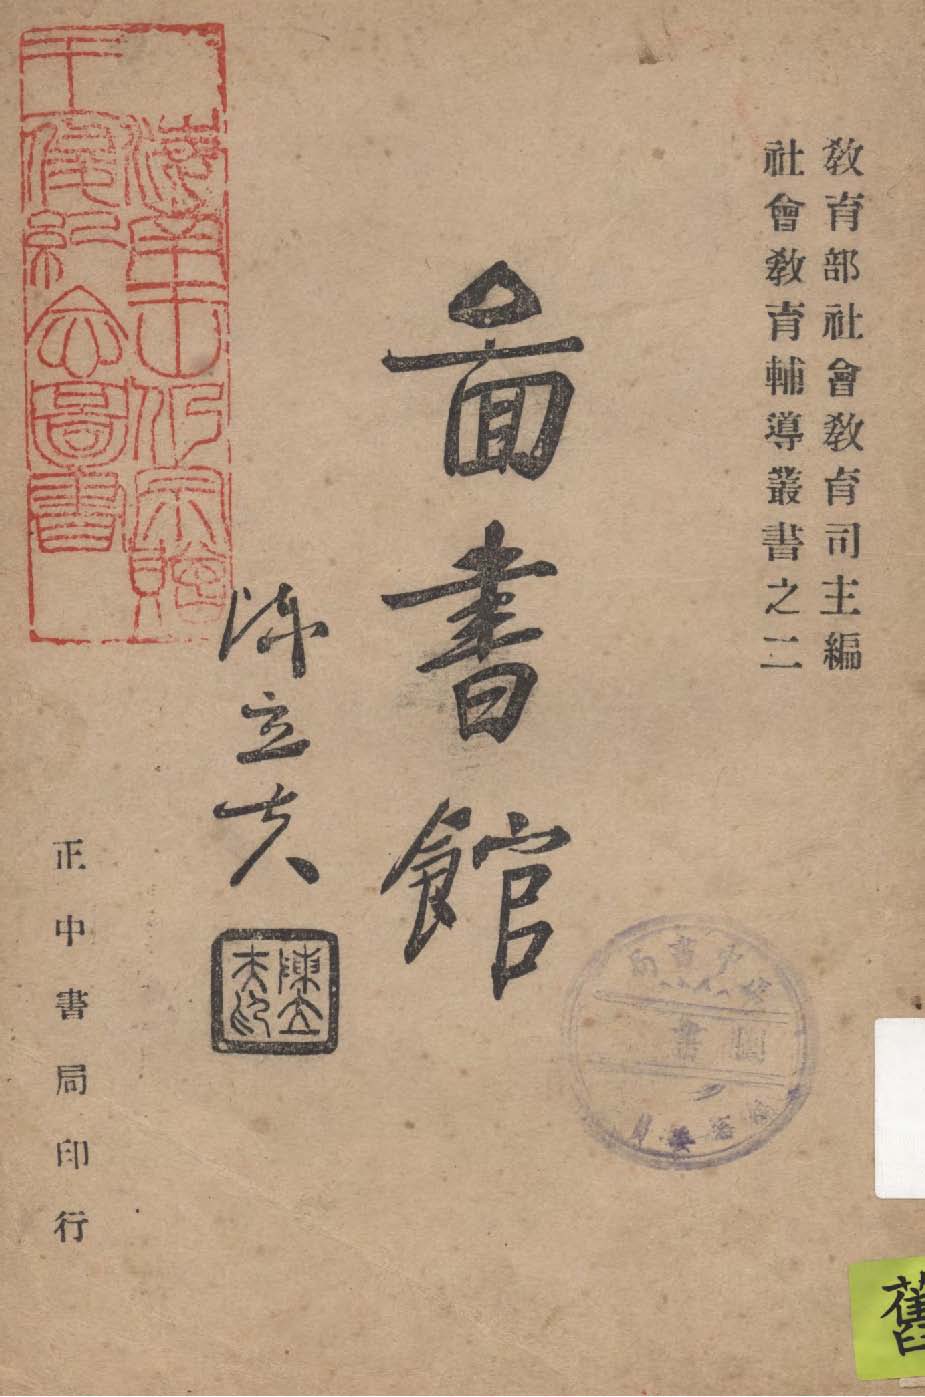 教育部社會教育司主編
社會教育輔導叢書之二
圖書館
陳立夫
陳立夫印
正中書局印行
圖書
舊